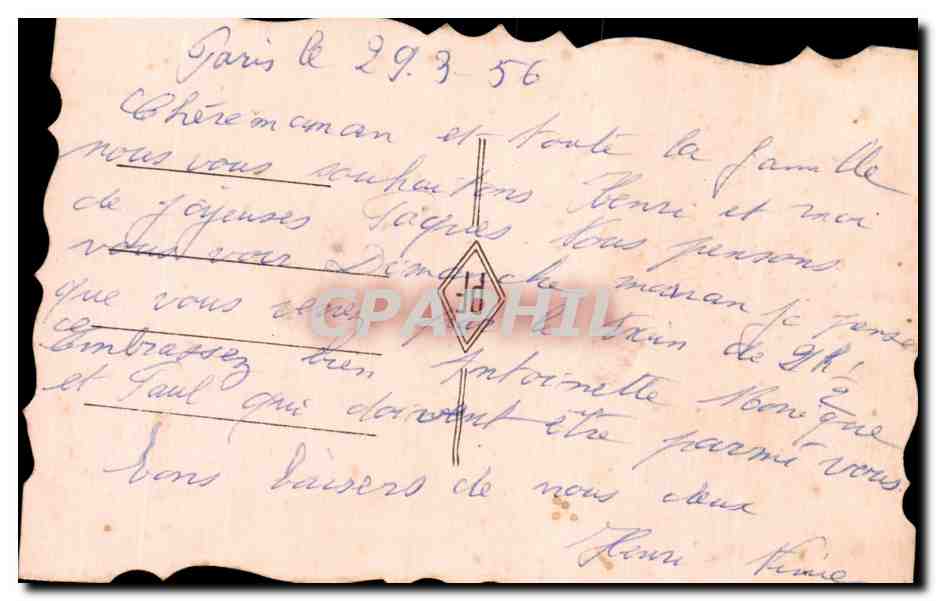 Paris le 29.3-56
Chère maman et toute la famille
nous vous souhaitons Henri et moi
de joyeuses Paques. Nous pensons
vous voir Dimanche maman je pense
que vous venez par le train de 9H!
Embrassez bien Antoinette Monique
et Paul qui doivent être parmi vous
bons baisers de nous deux
Henri
CPAPHIL